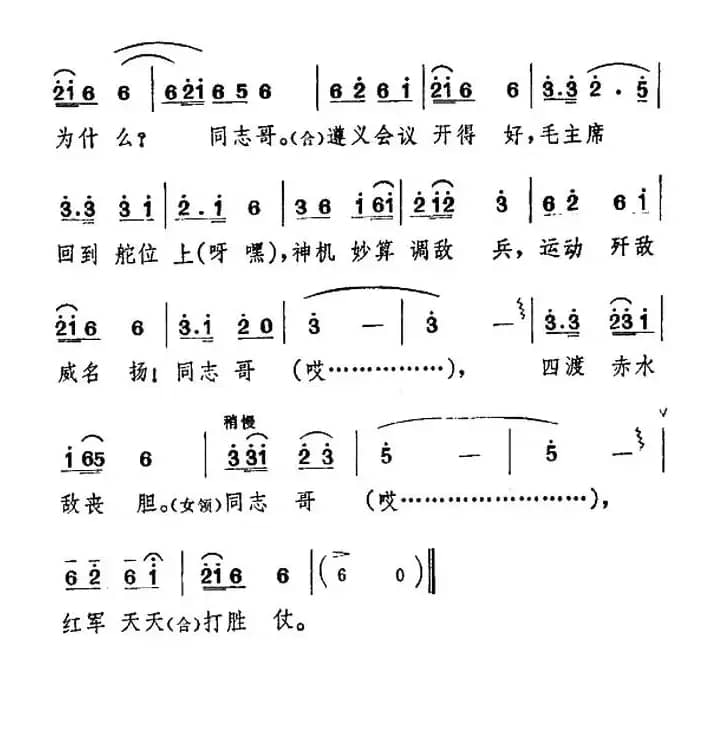 2̇1̇6 6 | 62̇1̇6 5 6 | 6 2̇ 6 1̇ | 2̇1̇6 6 | 3̇·3̇ 2̇ · 5̇ |
为什 么? 同志哥。(合)遵义会议 开得 好,毛主席
3̇·3̇ 3̇ 1̇ | 2̇·1̇ 6 | 3̇6 1̇ 61̇ | 2̇1̇2̇ 3̇ | 6 2̇ 6 1̇ |
回到 舵位 上(呀 嘿),神机 妙算 调敌 兵,运动 歼敌
2̇1̇6 6 | 3̇·1̇ 2̇ 0 | 3̇ — | 3̇ — | 3̇·3̇ 2̇3̇1̇ |
威名 扬!同志 哥 (哎………………), 四渡 赤水
稍慢
1̇ 65 6 | 3̇ 3̇1̇ 2̇ 3̇ | 5̇ — | 5̇ — |
敌丧 胆。(女领)同志 哥 (哎………………………),
6 2̇ 6 1̇ | 2̇1̇6 6 | (6 0) ‖
红军 天天(合)打胜 仗。